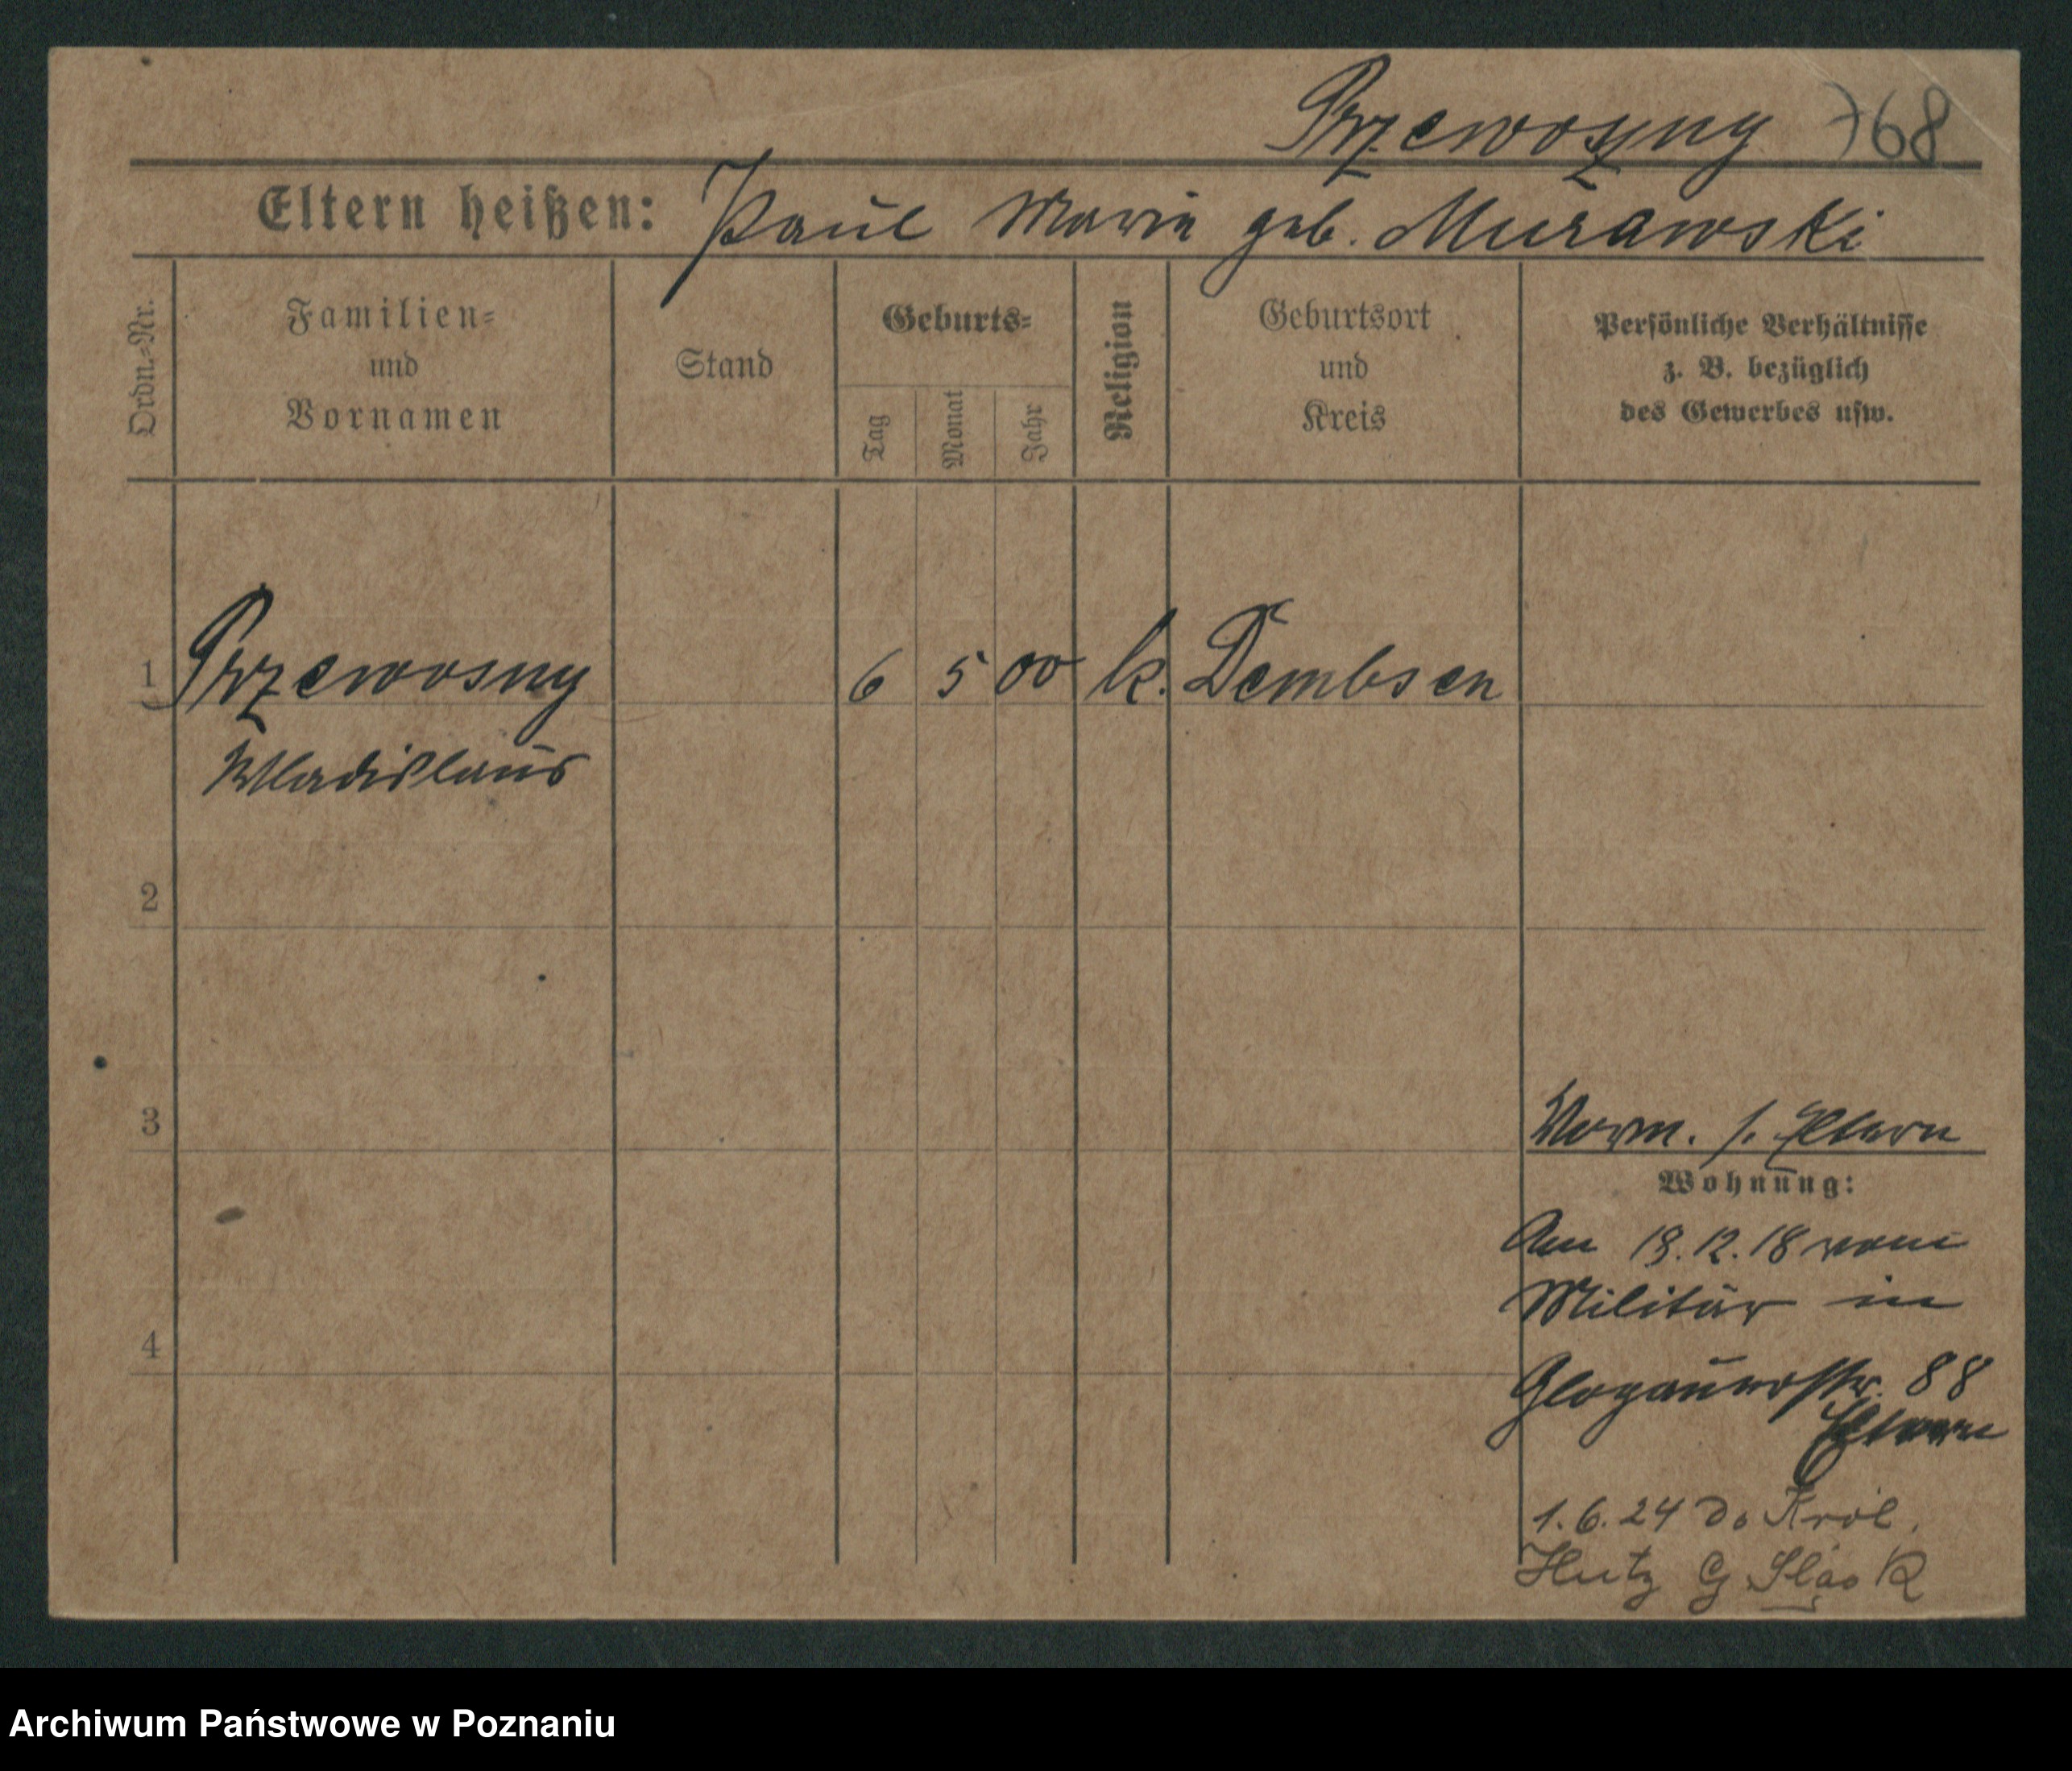 Przewozny 768
Eltern heißen: Paul Marie geb. Murawski
Ordn.-Nr.
Familien-
und
Vornamen
Stand
Geburts-
Tag
Monat
Jahr
Religion
Geburtsort
und
Kreis
Persönliche Verhältnisse
z. B. bezüglich
des Gewerbes usw.
1 Przewosny 6 5 00 k. Dembsen
Wladislaus
2
3
Verm. s. Eltern
Wohnung:
Am 19.12.18 vom
Militär in
4
Glogauerstr. 88
Eltern
1.6.24 do Król.
Huty G Śląsk
Archiwum Państwowe w Poznaniu